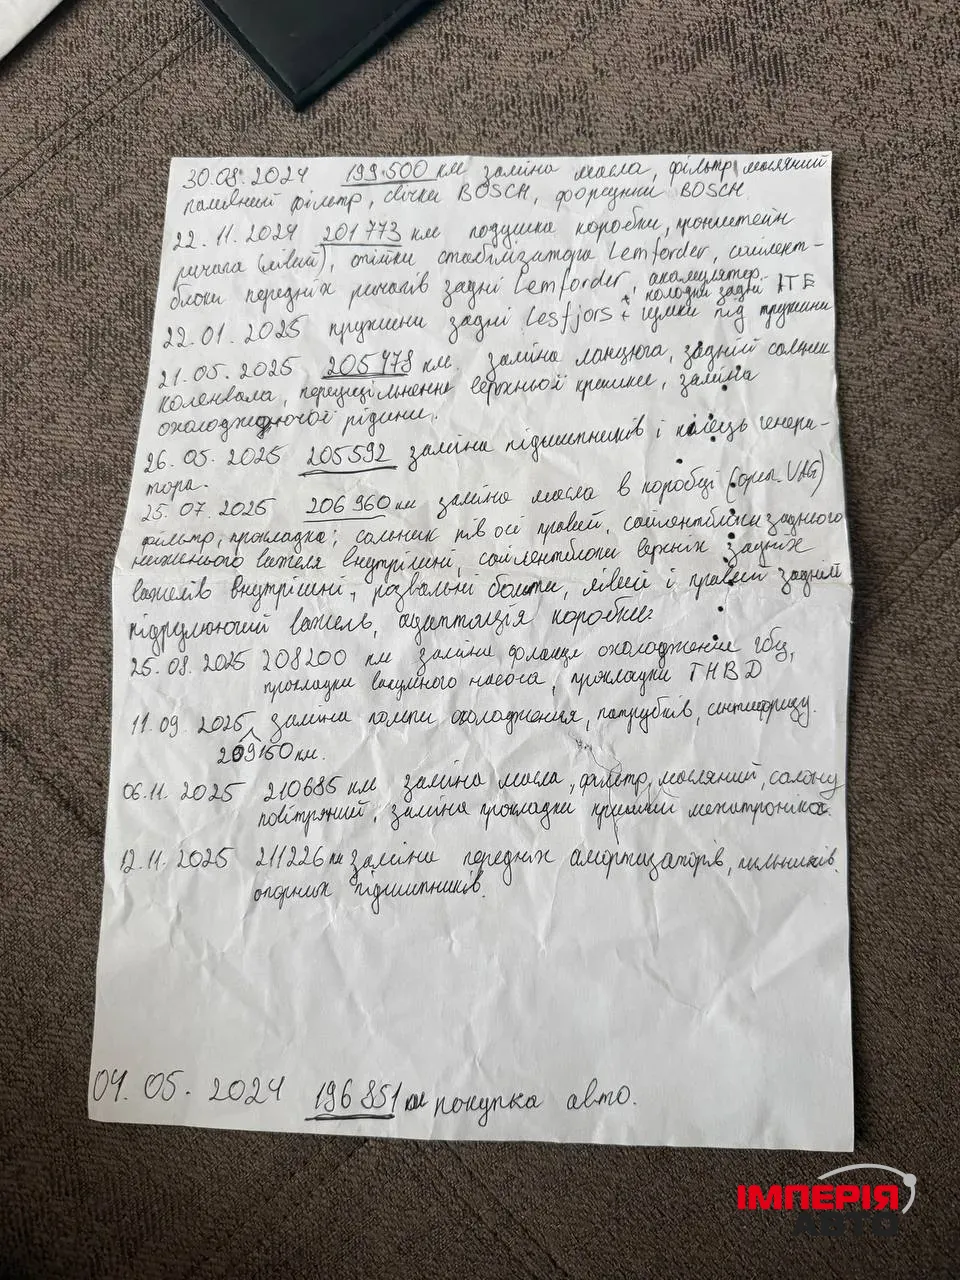 30.08.2024 199.500 км заміна масла, фільтр масляний
паливний фільтр, свічки BOSCH, форсунки BOSCH
22.11.2024 201 773 км подушка коробки, кронштейн
ричага (лівий), стійки стабілізатора Lemforder, сайлент-
блоки передніх ричагів задні Lemforder, акамулятор
+ колодки задні ATE
22.01.2025 пружини задні Lesjfors + гумки під пружини
21.05.2025 205 478 км. заміна ланцюга, задній сальник
коленвала, переущільнення верхньої кришки, заміна
охолоджуючої рідини.
26.05.2025 205592 заміна підшипників і кілець генера-
тора.
25.07.2025 206 960 км заміна масла в коробці (ориг. VAG)
фільтр, прокладка; сальник пів осі правий, сайлентблоки заднього
нижнього важеля внутрішні, сайлентблоки верхніх задніх
важелів внутрішні, розвальні болти, лівий і правий задній
підрулюючий важель, адаптація коробки.
25.08.2025 208200 км заміна фланця охолодження гбц,
прокладки вакумного насоса, прокладки ТНВD
11.09.2025 заміна помпи охолодження, патрубків, антифризу.
209160 км.
06.11.2025 210685 км заміна масла, фільтр, масляний, салону
повітряний, заміна прокладки кришки мехатроніка.
12.11.2025 211226 км заміна передніх амортизаторів, пильників.
опорних підшипників.
04.05.2024 196 851 км покупка авто.
ІМПЕРІЯ
АВТО